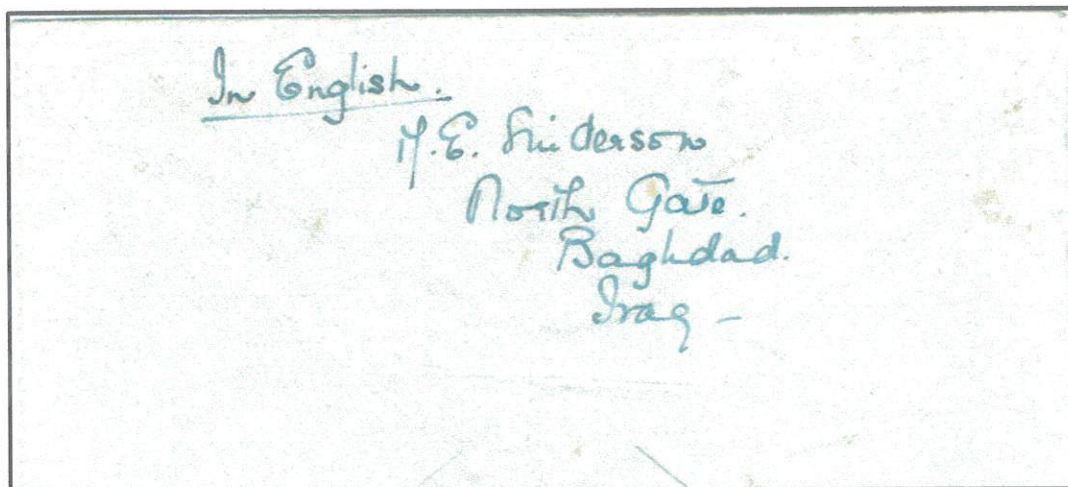 In English.
Sinderson
North Gate.
Baghdad.
Iraq -